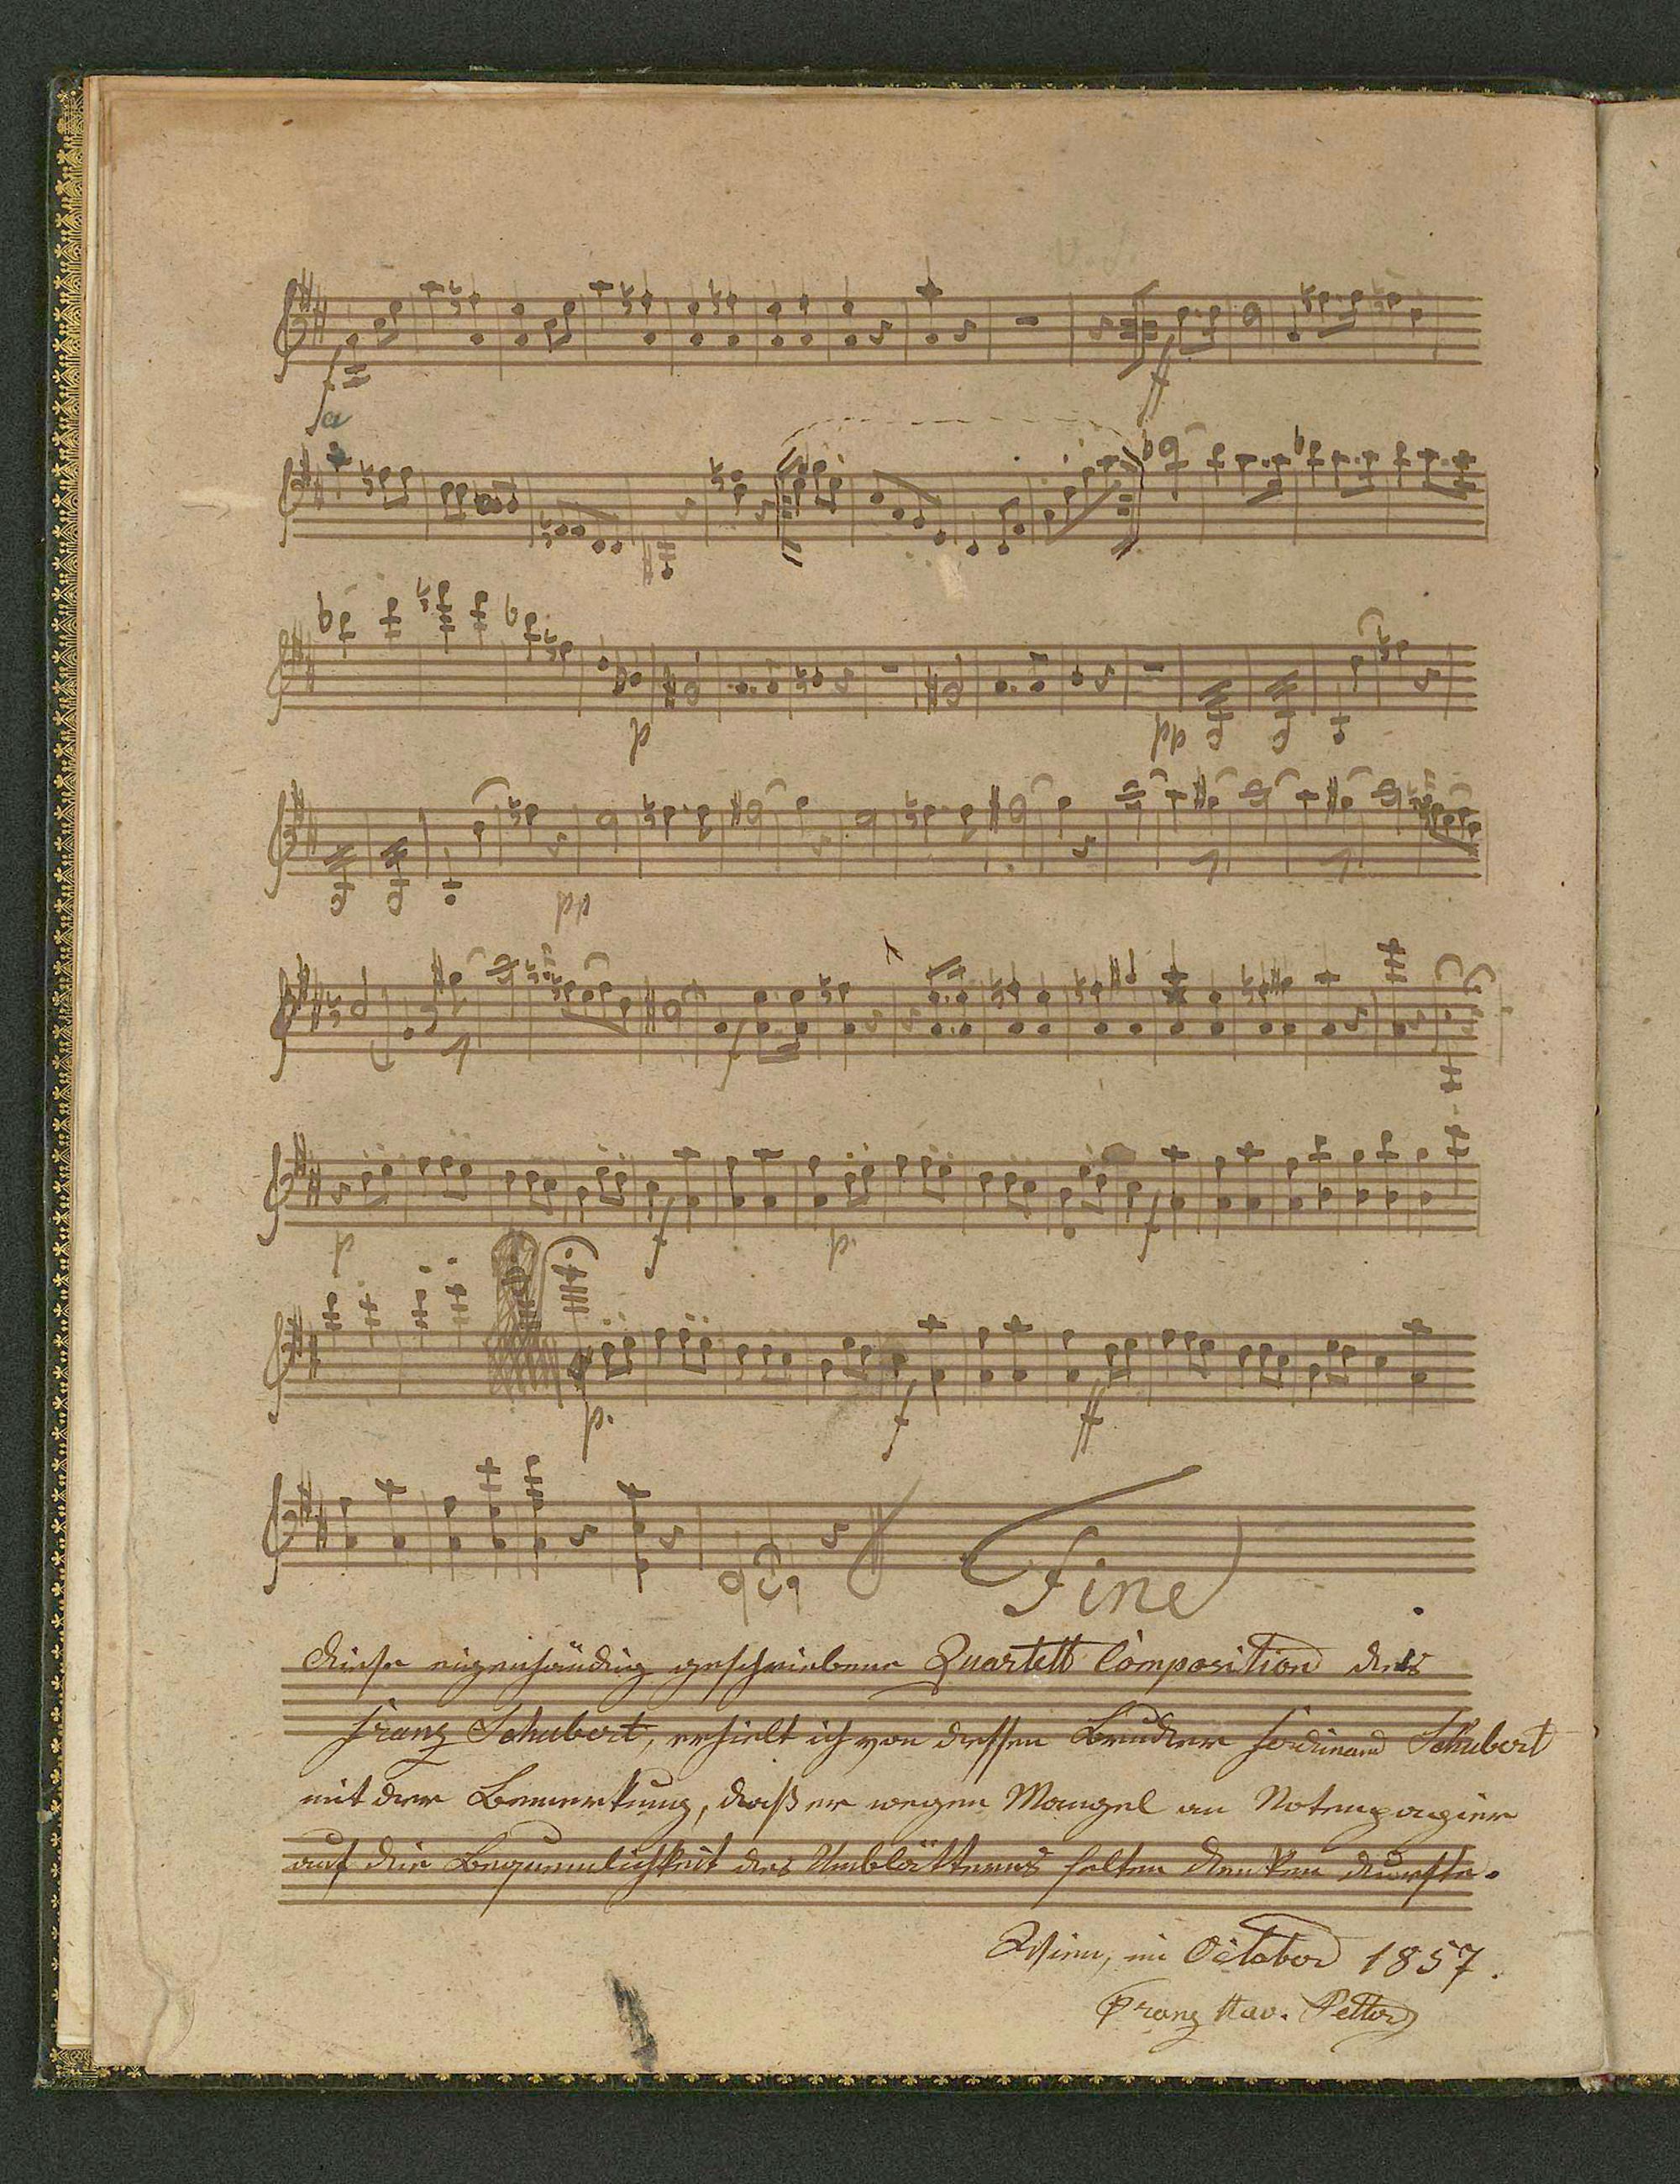 f
ff
p
pp
pp
f
p
f
p.
f
p.
f
ff
Fine
Diese eigenhändig geschriebene Quartett Composition des
Franz Schubert, erhielt ich von dessen Bruder Ferdinand Schubert
mit der Bemerkung, daß er wegen Mangel an Notenpapier
auf die Bequemlichkeit des Umblätterns selten denken durfte.
Wien, im October 1857.
Franz Xav.